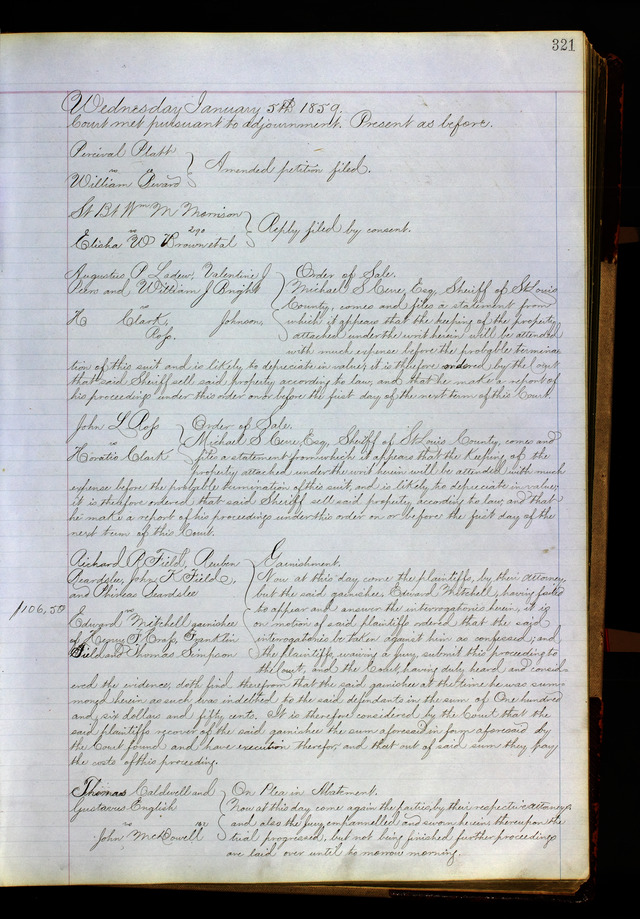 321
Wednesday January 5th 1859.
Court met pursuant to adjournment. Present as before.
Percival Platt
vs
William
Amended petition filed.
St Bt Wm M Morrison
vs 290
Elisha W Brown et al
Reply filed by consent.
Augustus P Ladew, Valentine J
Peers and William J Bright
vs
H Clark, Johnson,
Ross.
Order of Sale.
Michael S Cerre, Esq, Sheriff of St Louis
County, comes and files a statement from
which it appears that the keeping of the property
attached under the writ herein will be attended
with much expense before the probable termina-
tion of this suit and is likely to depreciate in value; it is therefore ordered by the Court
that said Sheriff sell said property according to law, and that he make a report of
his proceedings under this order on or before the first day of the next term of this Court.
John L Ross
vs
Horatio Clark
Order of Sale.
Michael S Cerre, Esq, Sheriff of St Louis County, comes and
files a statement from which it appears that the keeping of the
property attached under the writ herein will be attended with much
expense before the probable termination of this suit, and is likely to depreciate in value;
it is therefore ordered that said Sheriff sell said property, according to law, and that
he make a report of his proceedings under this order on or before the first day of the
next term of this Court.
Richard R Field, Reuben
Beardslee, John K Field,
and Phineas Beardslee
vs
$106,50
Edward Mitchell garnishee
of Henry T Cross, Franklin
Field and Thomas Simpson
Garnishment.
Now at this day come the plaintiffs, by their attorney,
but the said garnishee, Edward Mitchell, having failed
to appear and answer the interrogatories herein, it is
on motion of said plaintiffs ordered that the said
interrogatories be taken against him as confessed; and
the plaintiffs, waiving a jury, submit this proceeding to
the Court, and the Court, having duly heard and consid-
ered the evidence, doth find therefrom that the said garnishee at the time he was sum-
moned herein as such, was indebted to the said defendants in the sum of One hundred
and six dollars and fifty cents. It is therefore considered by the Court that the
said plaintiffs recover of the said garnishee the sum aforesaid in form aforesaid by
the Court found and have execution therefor, and that out of said sum they pay
the costs of this proceeding.
Thomas Caldwell and
Gustavus English
vs 102
John McDowell
On Plea in Abatement.
Now at this day come again the parties, by their respective attorneys,
and also the jury empannelled and sworn herein, thereupon the
trial progressed, but not being finished further proceedings
are laid over until to morrow morning.